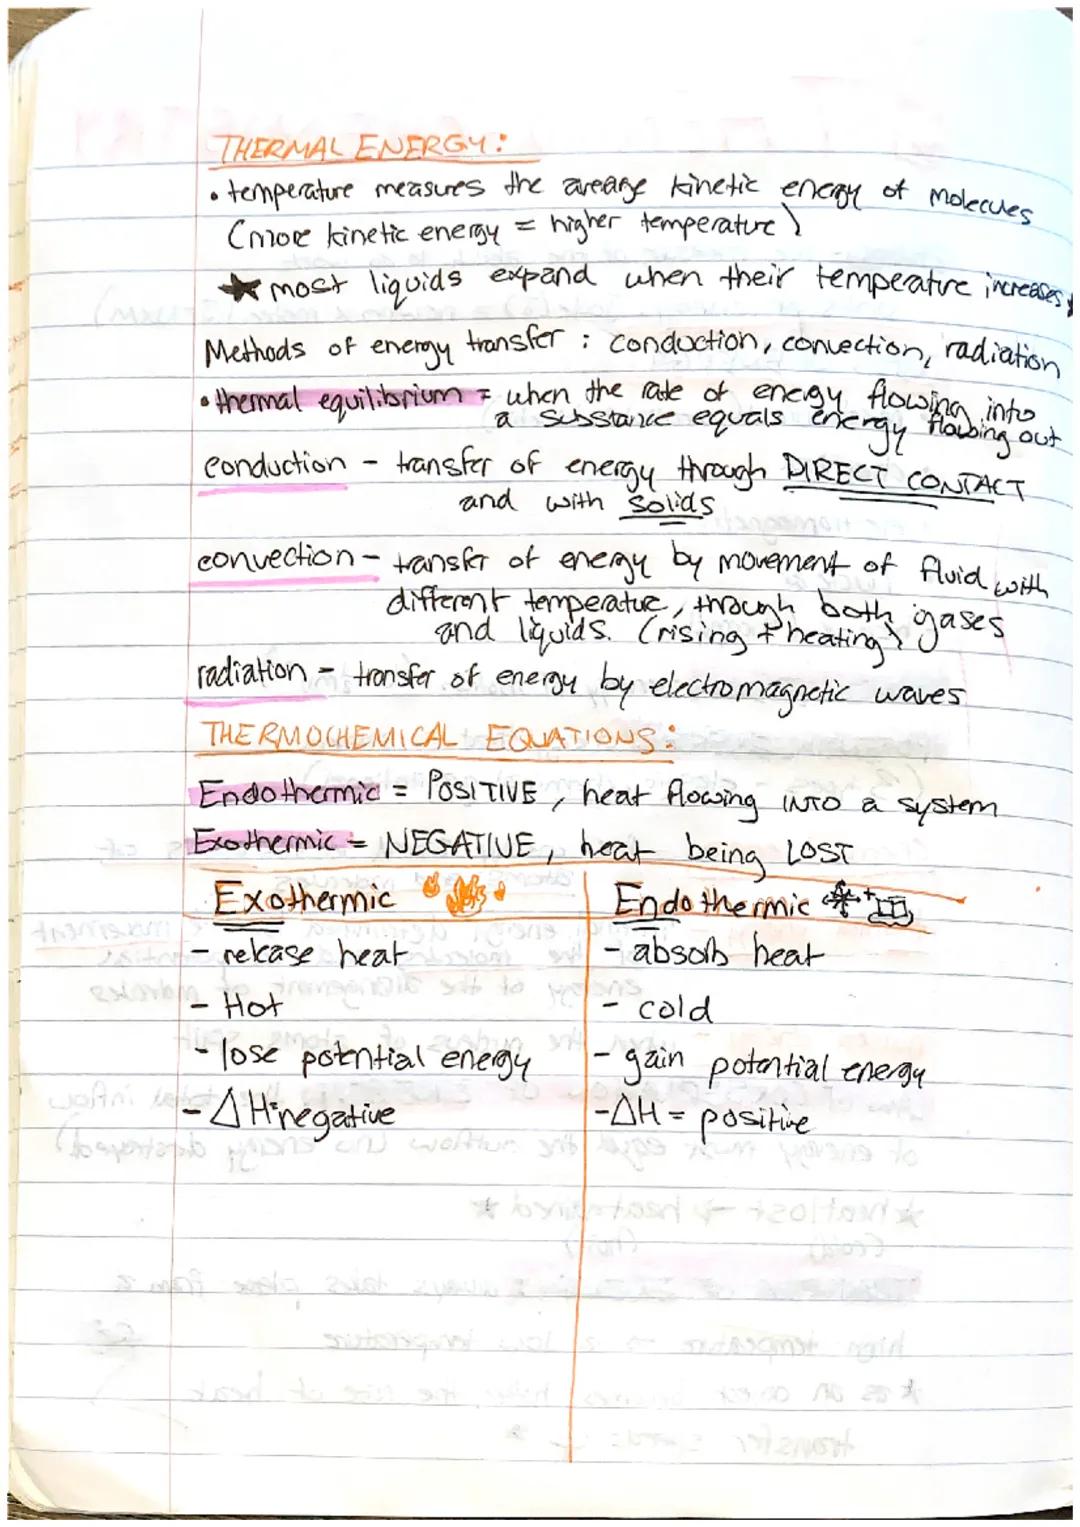 THERMAL ENERGY:
• temperature measures the average kinetic energy of molecules
(more kinetic energy = higher temperature)
★ most liquids expand when their temperature increases
Methods of energy transfer : conduction, convection, radiation
• thermal equilibrium = when the rate of energy flowing into
a substance equals energy flowing out
conduction - transfer of energy through DIRECT CONTACT
and with solids
convection - transfer of energy by movement of fluid with
different temperature, through both gases
and liquids. (rising + heating)
radiation - transfer of energy by electromagnetic waves
THERMOCHEMICAL EQUATIONS:
Endothermic = POSITIVE, heat flowing INTO a system
Exothermic = NEGATIVE, heat being LOST
Exothermic
- release heat
- Hot
- lose potential energy
- ΔH=negative
Endothermic
- absorb heat
- cold
- gain potential energy
- ΔH = positive